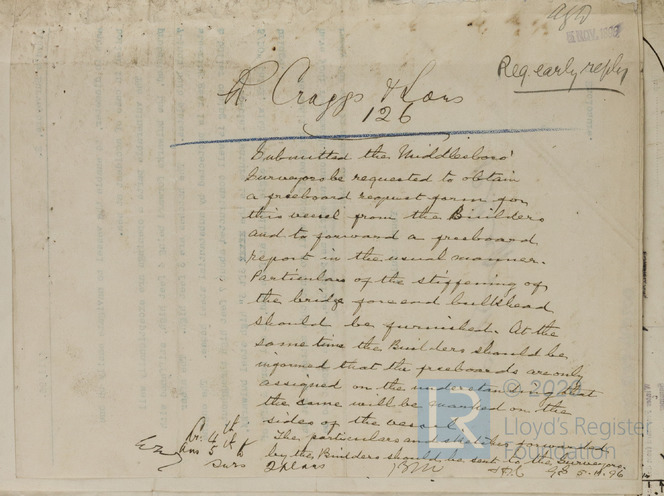 Req. early reply
R Craggs & Sons
126
Submitted the Middlesboro'
Surveyors be requested to obtain
a freeboard request form for
this vessel from the Builders
and to forward a freeboard
report in the usual manner.
Particulars of the stiffening of
the bridge fore end bulkhead
should be furnished. At the
same time the Builders should be
informed that the freeboards are only
assigned on the understanding that
the same will be marked on the
sides of the vessel.
The particulars and sketches forwarded
by the Builders should be sent to the Surveyors.
5.11.96
Ans 5th
Surs 2 plans
© 202
Lloyd's Register
Foundation